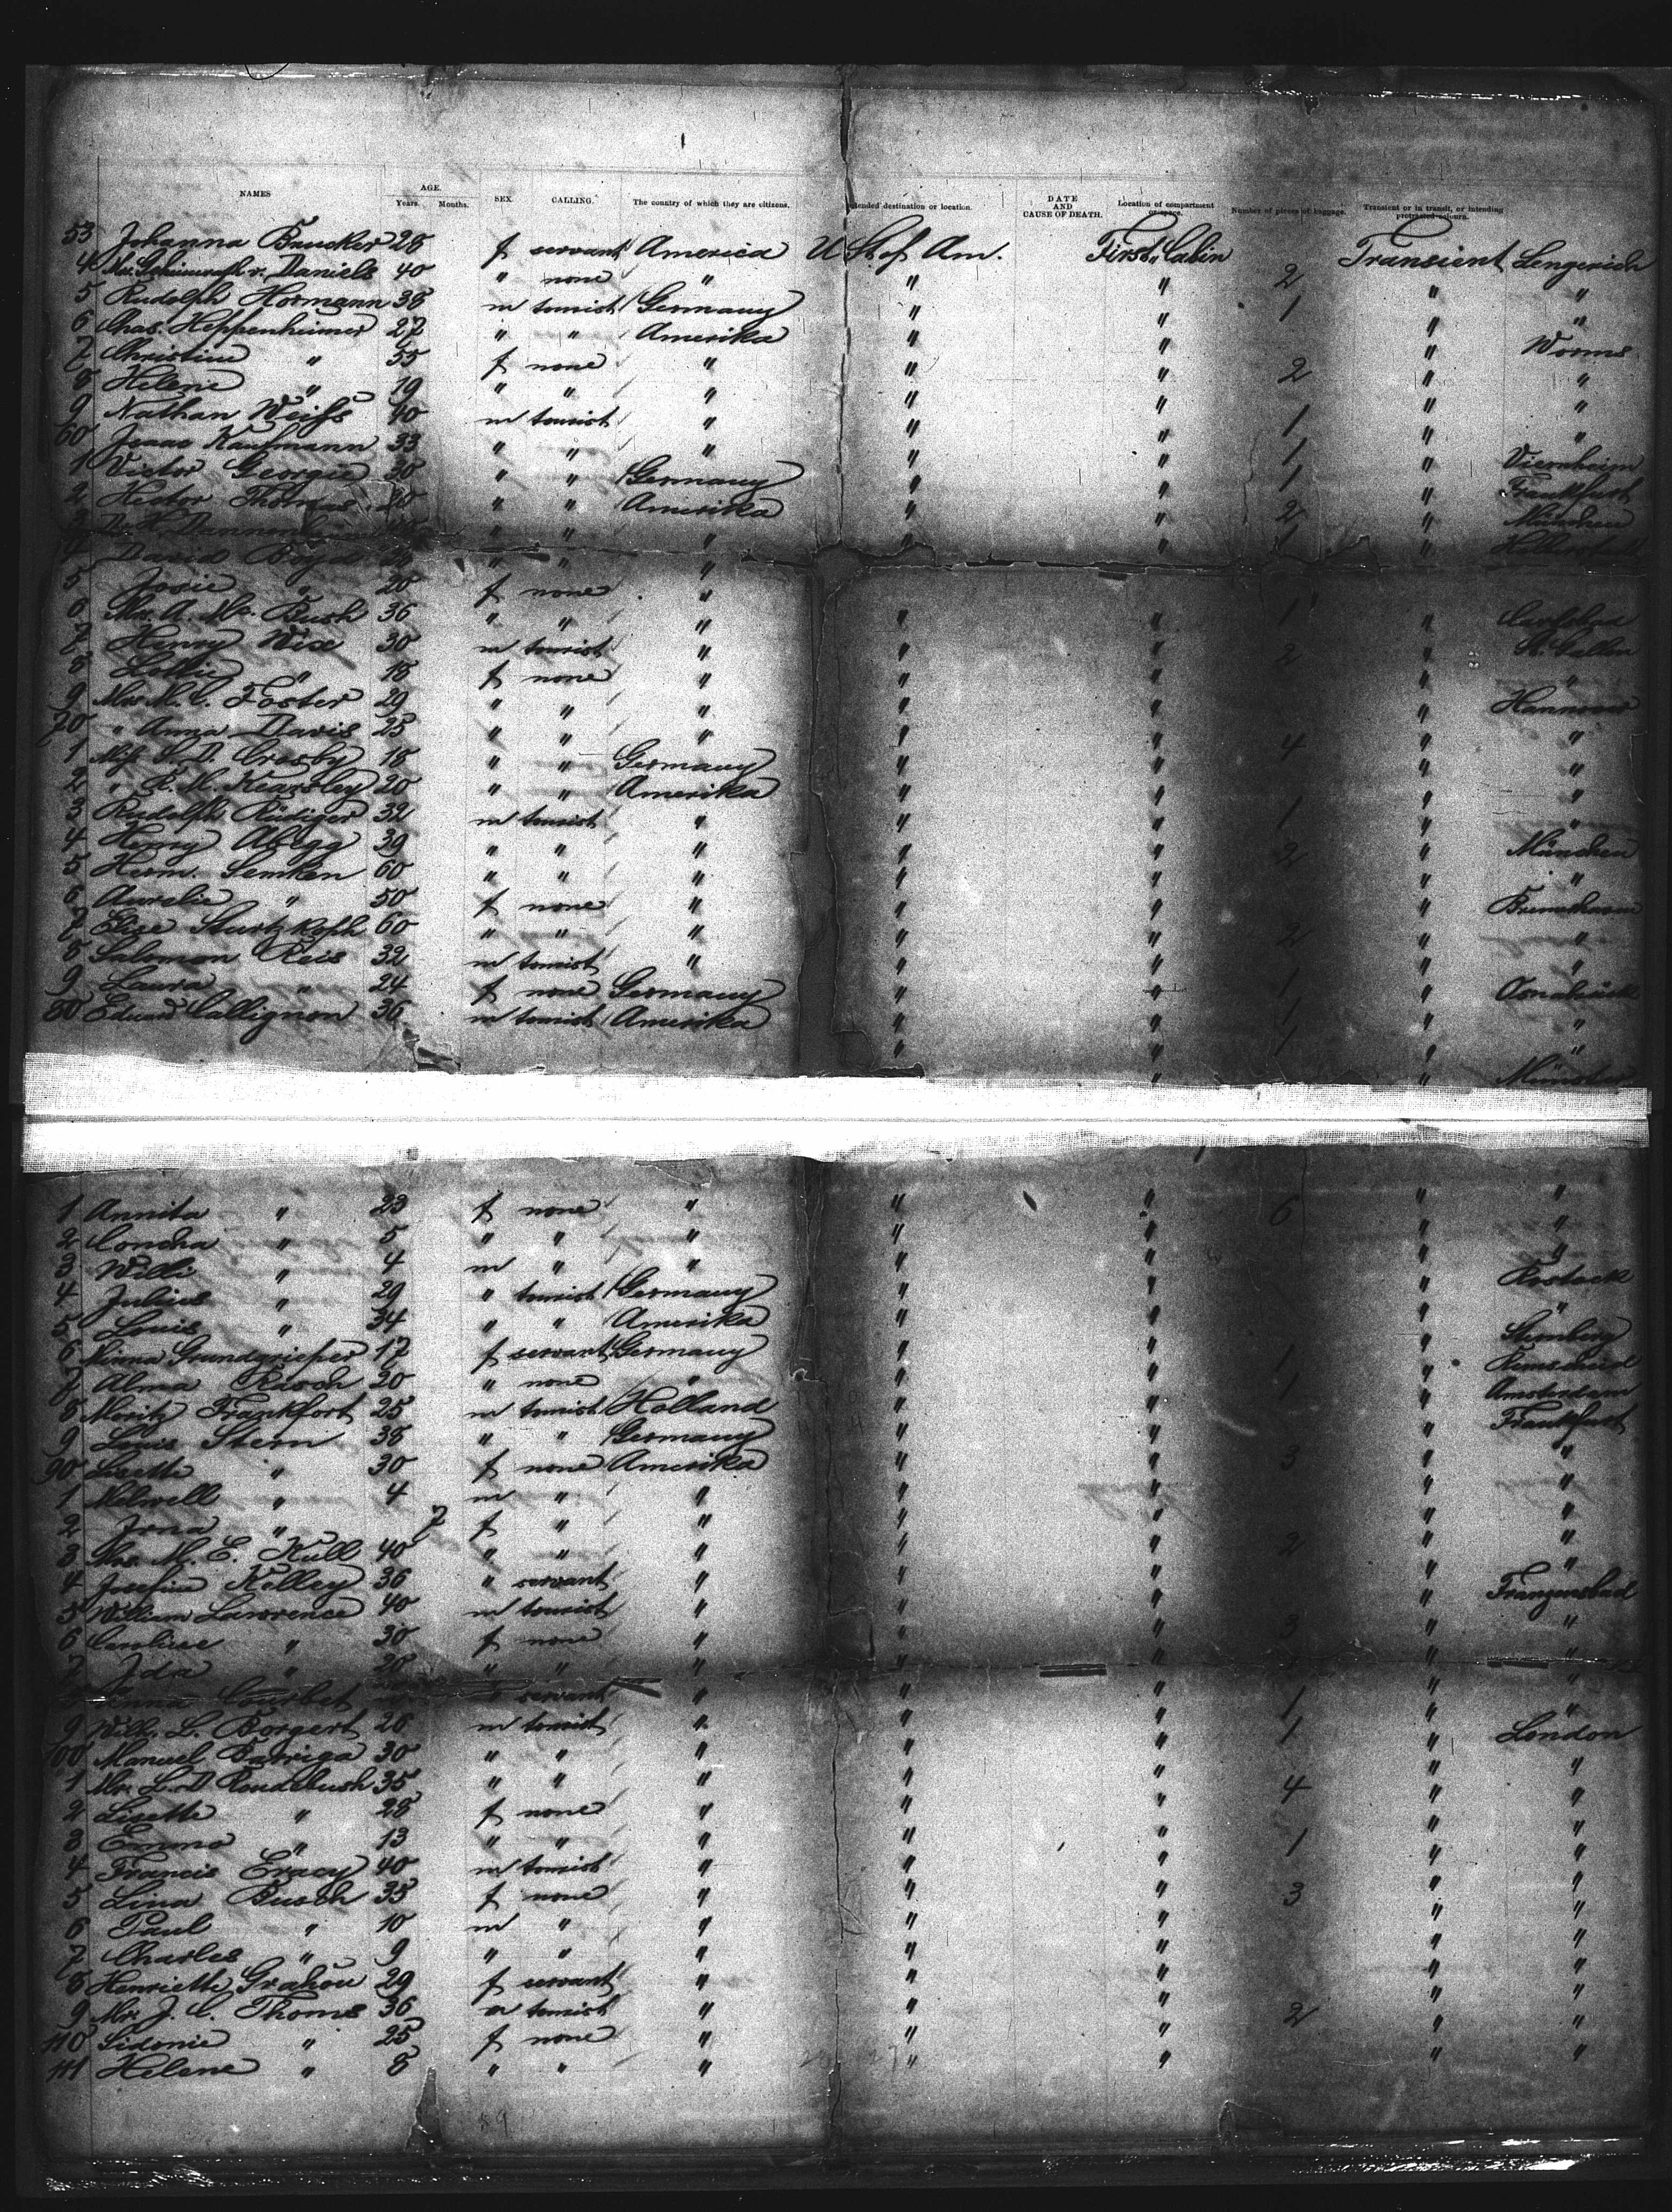 NAMES AGE. Years. Months. SEX. CALLING. The country of which they are citizens. Intended destination or location. DATE AND CAUSE OF DEATH. Location of compartment or space. Number of pieces of baggage. Transient or in transit, or intending protracted sojourn.
53 Johanna Brucker 28 f servant America U St of Am. First Cabin Transient Lengerich
4 v. Daniels 40 " none " " " 2 " "
5 Rudolph Hormann 38 m tourist Germany " " 1 " "
6 Chas. Heppenheimer 27 " " Amerika " " " Worms
7 Christine " 55 f none " " " 2 " "
8 Helene " 19 " " " " " " "
9 Nathan Weiss 40 m tourist " " " 1 " "
60 Isaac Kaufmann 33 " " " " " 1 " Viernheim
1 Victor Georgie 30 " " Germany " " 1 " Frankfurt
2 Hector Thomas 20 " " Amerika " " 2 " München
3 Dr. H. " " " " " 1 "
4 David Boyd " " "
5 Josie " 20 f none "
6 Mrs. A. Bush 36 " " " " " 1 " Carlsbad
7 Henry Wix 30 m tourist " " " 2 " St. Gallen
8 Lottie " 18 f none " " " " "
9 Mrs M. C. Foster 29 " " " " " " Hannover
70 " Anna Davis 25 " " " " " 4 " "
1 Miss S. D. Crosby 18 " " Germany " " " "
2 " R. M. Kearsley 20 " " Amerika " " " "
3 Rudolph Rüdiger 32 m tourist " " " 1 " "
4 Henry Abegg 39 " " " " " 2 " München
5 Herm. Semken 60 " " " " " " "
6 Aurelie " 50 f none " " " " Bremerhaven
7 Elise Sturtzkoph 60 " " " " " 2 " "
8 Salomon Reis 32 m tourist " " " " "
9 Laura " 24 f none Germany " " 1 " Osnabrück
80 Eduard Callignon 36 m tourist Amerika " " 1 " "
" " 1 " "
" " Münster
1 Annita " 23 f none " " " 6 " "
2 Concha " 5 " " " " " " "
3 Willi " 4 m " " " " " "
4 Julius " 29 " tourist Germany " " " Rostock
5 Louis " 34 " " Amerika " " " "
6 Minna Grundgrieper 17 f servant Germany " " 1 " Sternberg
7 Alma Rusch 20 " none " " " 1 " Remscheid
8 Moritz Frankfort 25 m tourist Holland " " " Amsterdam
9 Louis Stern 38 " " Germany " " " Frankfurt
90 Lisette " 30 f none Amerika " " 3 " "
1 Melwell " 4 m " " " " " "
2 Irna " 7 f " " " " " "
3 Mrs. M. E. Kull 40 " " " " " 2 " "
4 Josefine Kelley 36 " servant " " " " Franzensbad
5 William Lawrence 40 m tourist " " " 3 " "
6 Caroline " 30 f none " " " " "
7 Ida " 20 " " " " " " "
Courbet servant " " " 1 " "
9 Willi. L. Borgert 26 m tourist " " " 1 " London
100 Manuel Barriga 30 " " " " " " "
1 Mr. L. D Roudebush 35 " " " " " 4 " "
2 Lisette " 28 f none " " " " "
3 Emma " 13 " " " " " 1 " "
4 Francis Eracy 40 m tourist " " " " "
5 Lina Busch 35 f none " " " 3 " "
6 Paul " 10 m " " " " " "
7 Charles " 9 " " " " " " "
8 Henriette Grahou 29 f servant " " " " "
9 Mr. J. C. Thoms 36 m tourist " " " 2 " "
110 Sidonie " 25 f none " " " " "
111 Helene " 8 " " " " " " "
89